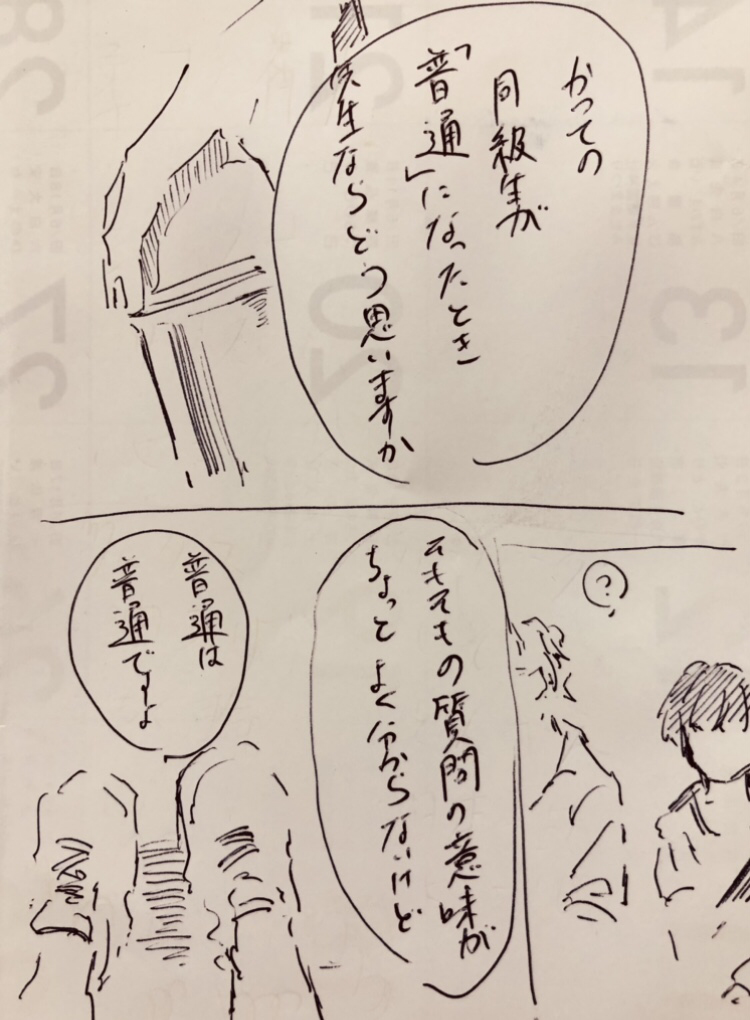 かつての
同級生が
「普通」になったとき
先生ならどう思いますか
?
そもそもの質問の意味が
ちょっとよく分からないけど
普通は
普通ですよ